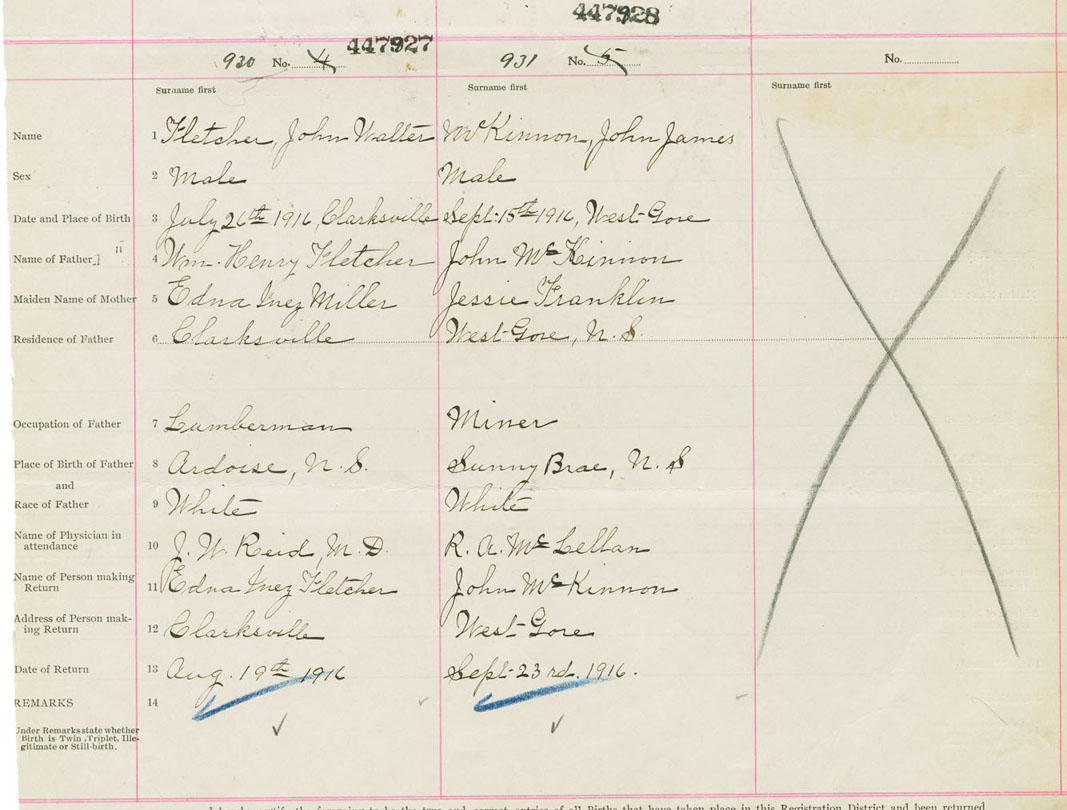 447928
447927
930 No. 4
931 No. 5
No.
Surname first
Surname first
Surname first
Name 1 Fletcher, John Walter McKinnon, John James
Sex 2 Male Male
Date and Place of Birth 3 July 26th 1916, Clarksville Sept. 15th 1916, West Gore
Name of Father 4 Wm. Henry Fletcher John McKinnon
Maiden Name of Mother 5 Edna Inez Miller Jessie Franklin
Residence of Father 6 Clarksville West Gore, N.S.
Occupation of Father 7 Lumberman Miner
Place of Birth of Father 8 Ardoise, N.S. Sunny Brae, N.S
and
Race of Father 9 White White
Name of Physician in
attendance 10 J. W. Reid, M.D. R. A. McLellan
Name of Person making
Return 11 Edna Inez Fletcher John McKinnon
Address of Person mak-
ing Return 12 Clarksville West Gore
Date of Return 13 Aug. 19th 1916 Sept 23rd. 1916.
REMARKS 14
Under Remarks state whether
Birth is Twin, Triplet, Ille-
gitimate or Still-birth.
I hereby certify the foregoing to be the true and correct entries of all Births that have taken place in this Registration District and been returned